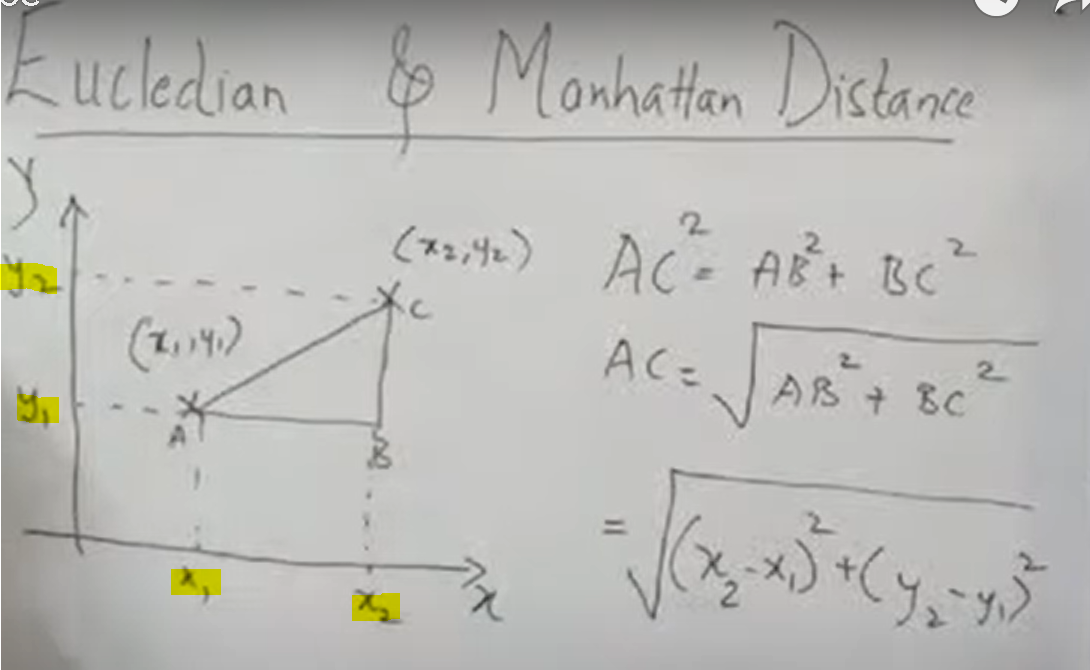 Eucledian & Manhattan Distance
y
(x₂,y₂)
y₂
C
(x₁,y₁)
y₁
A
B
x₁
x₂
x
AC² = AB² + BC²
AC = √(AB² + BC²)
= √((x₂-x₁)² + (y₂-y₁)²)